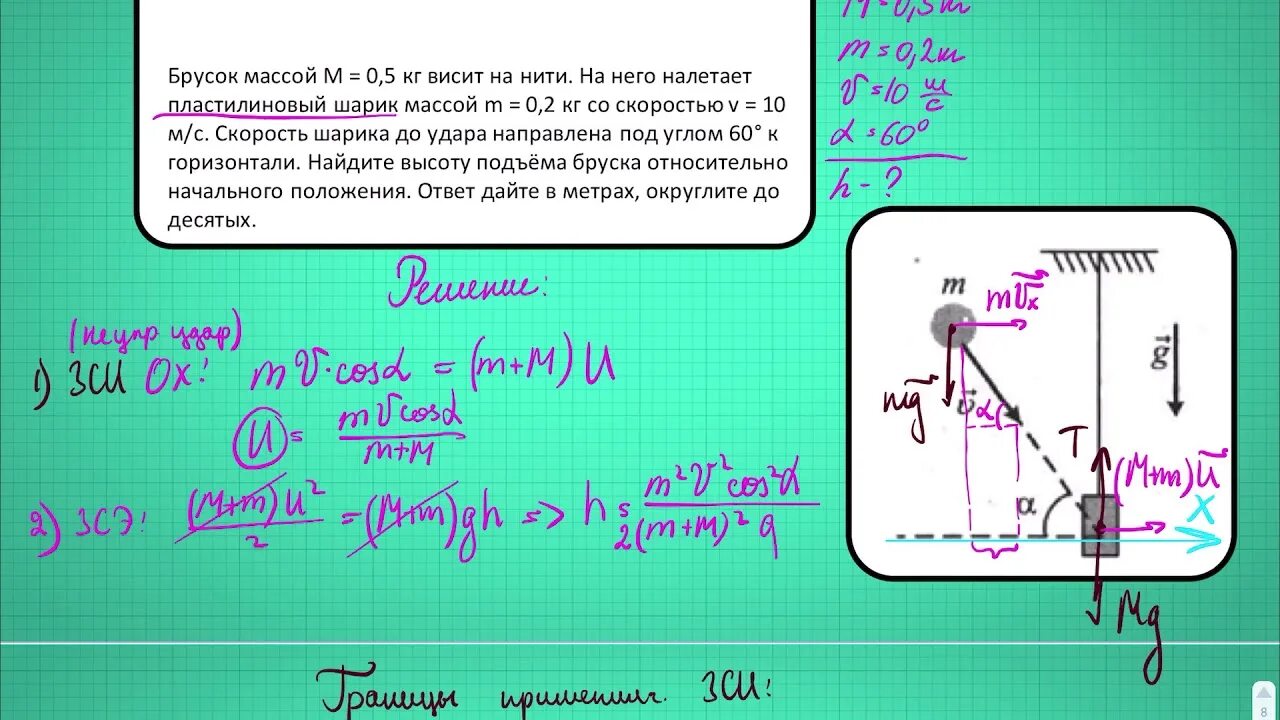 Брусок массой M = 0,5 кг висит на нити. На него налетает
пластилиновый шарик массой m = 0,2 кг со скоростью v = 10
м/с. Скорость шарика до удара направлена под углом 60° к
горизонтали. Найдите высоту подъёма бруска относительно
начального положения. Ответ дайте в метрах, округлите до
десятых.
m = 0,2 кг
v = 10 м/с
α = 60°
h - ?
Решение:
(неупр удар)
1) ЗСИ OX: m v · cosα = (m+M) U
U = m v cosα / m+M
2) ЗСЭ: (M+m) U² / 2 = (M+m) g h => h = m² v² cos² α / 2 (m+M)² g
m
m v⃗x
mg⃗
v⃗
α
g⃗
T
(M+m) U⃗
α
X
Mg
Границы применим. ЗСИ:
8